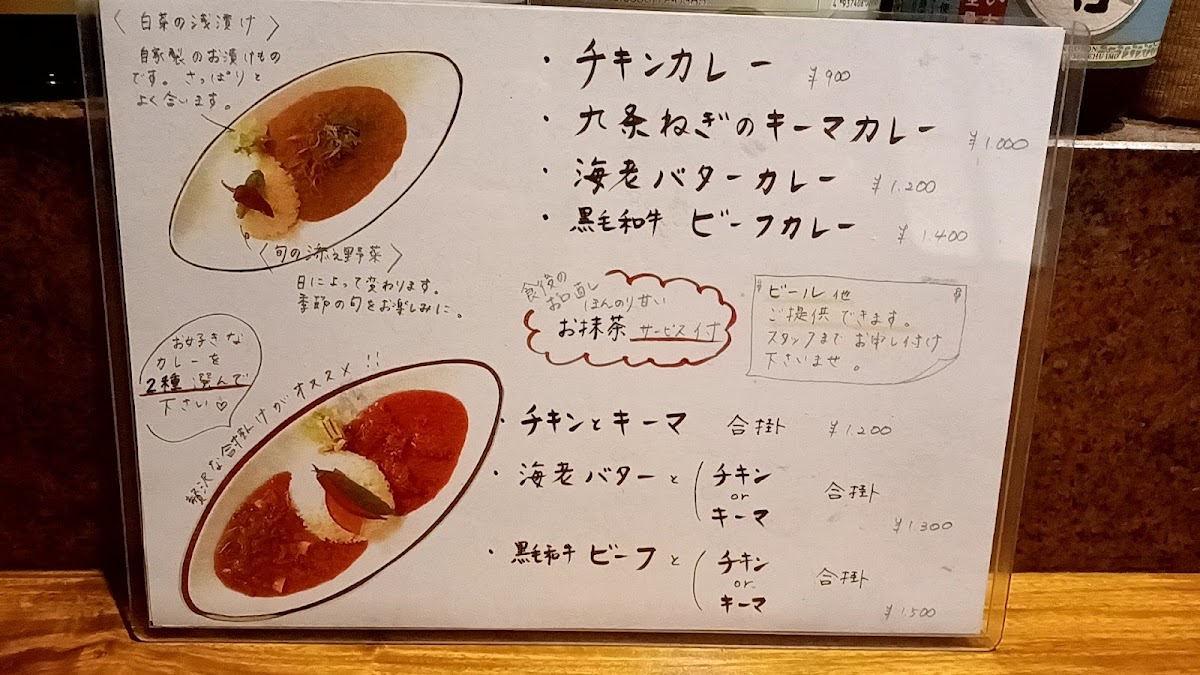 〈白菜の浅漬け〉
自家製のお漬けもの
です。さっぱりと
よく合います。
・チキンカレー ¥900
・九条ねぎのキーマカレー ¥1.000
・海老バターカレー ¥1.200
・黒毛和牛 ビーフカレー ¥1.400
〈旬の添え野菜〉
日によって変わります。
季節の旬をお楽しみに。
食後の
お口直し
ほんのり甘い
お抹茶 サービス付
ビール他
ご提供できます。
スタッフまでお申し付け
下さいませ。
お好きな
カレーを
2種選んで
下さい♡
贅沢な合掛けがオススメ!!
・チキンとキーマ 合掛 ¥1.200
・海老バターと(チキン
or
キーマ
合掛
¥1.300
・黒毛和牛 ビーフと(チキン
or
キーマ
合掛
¥1.500